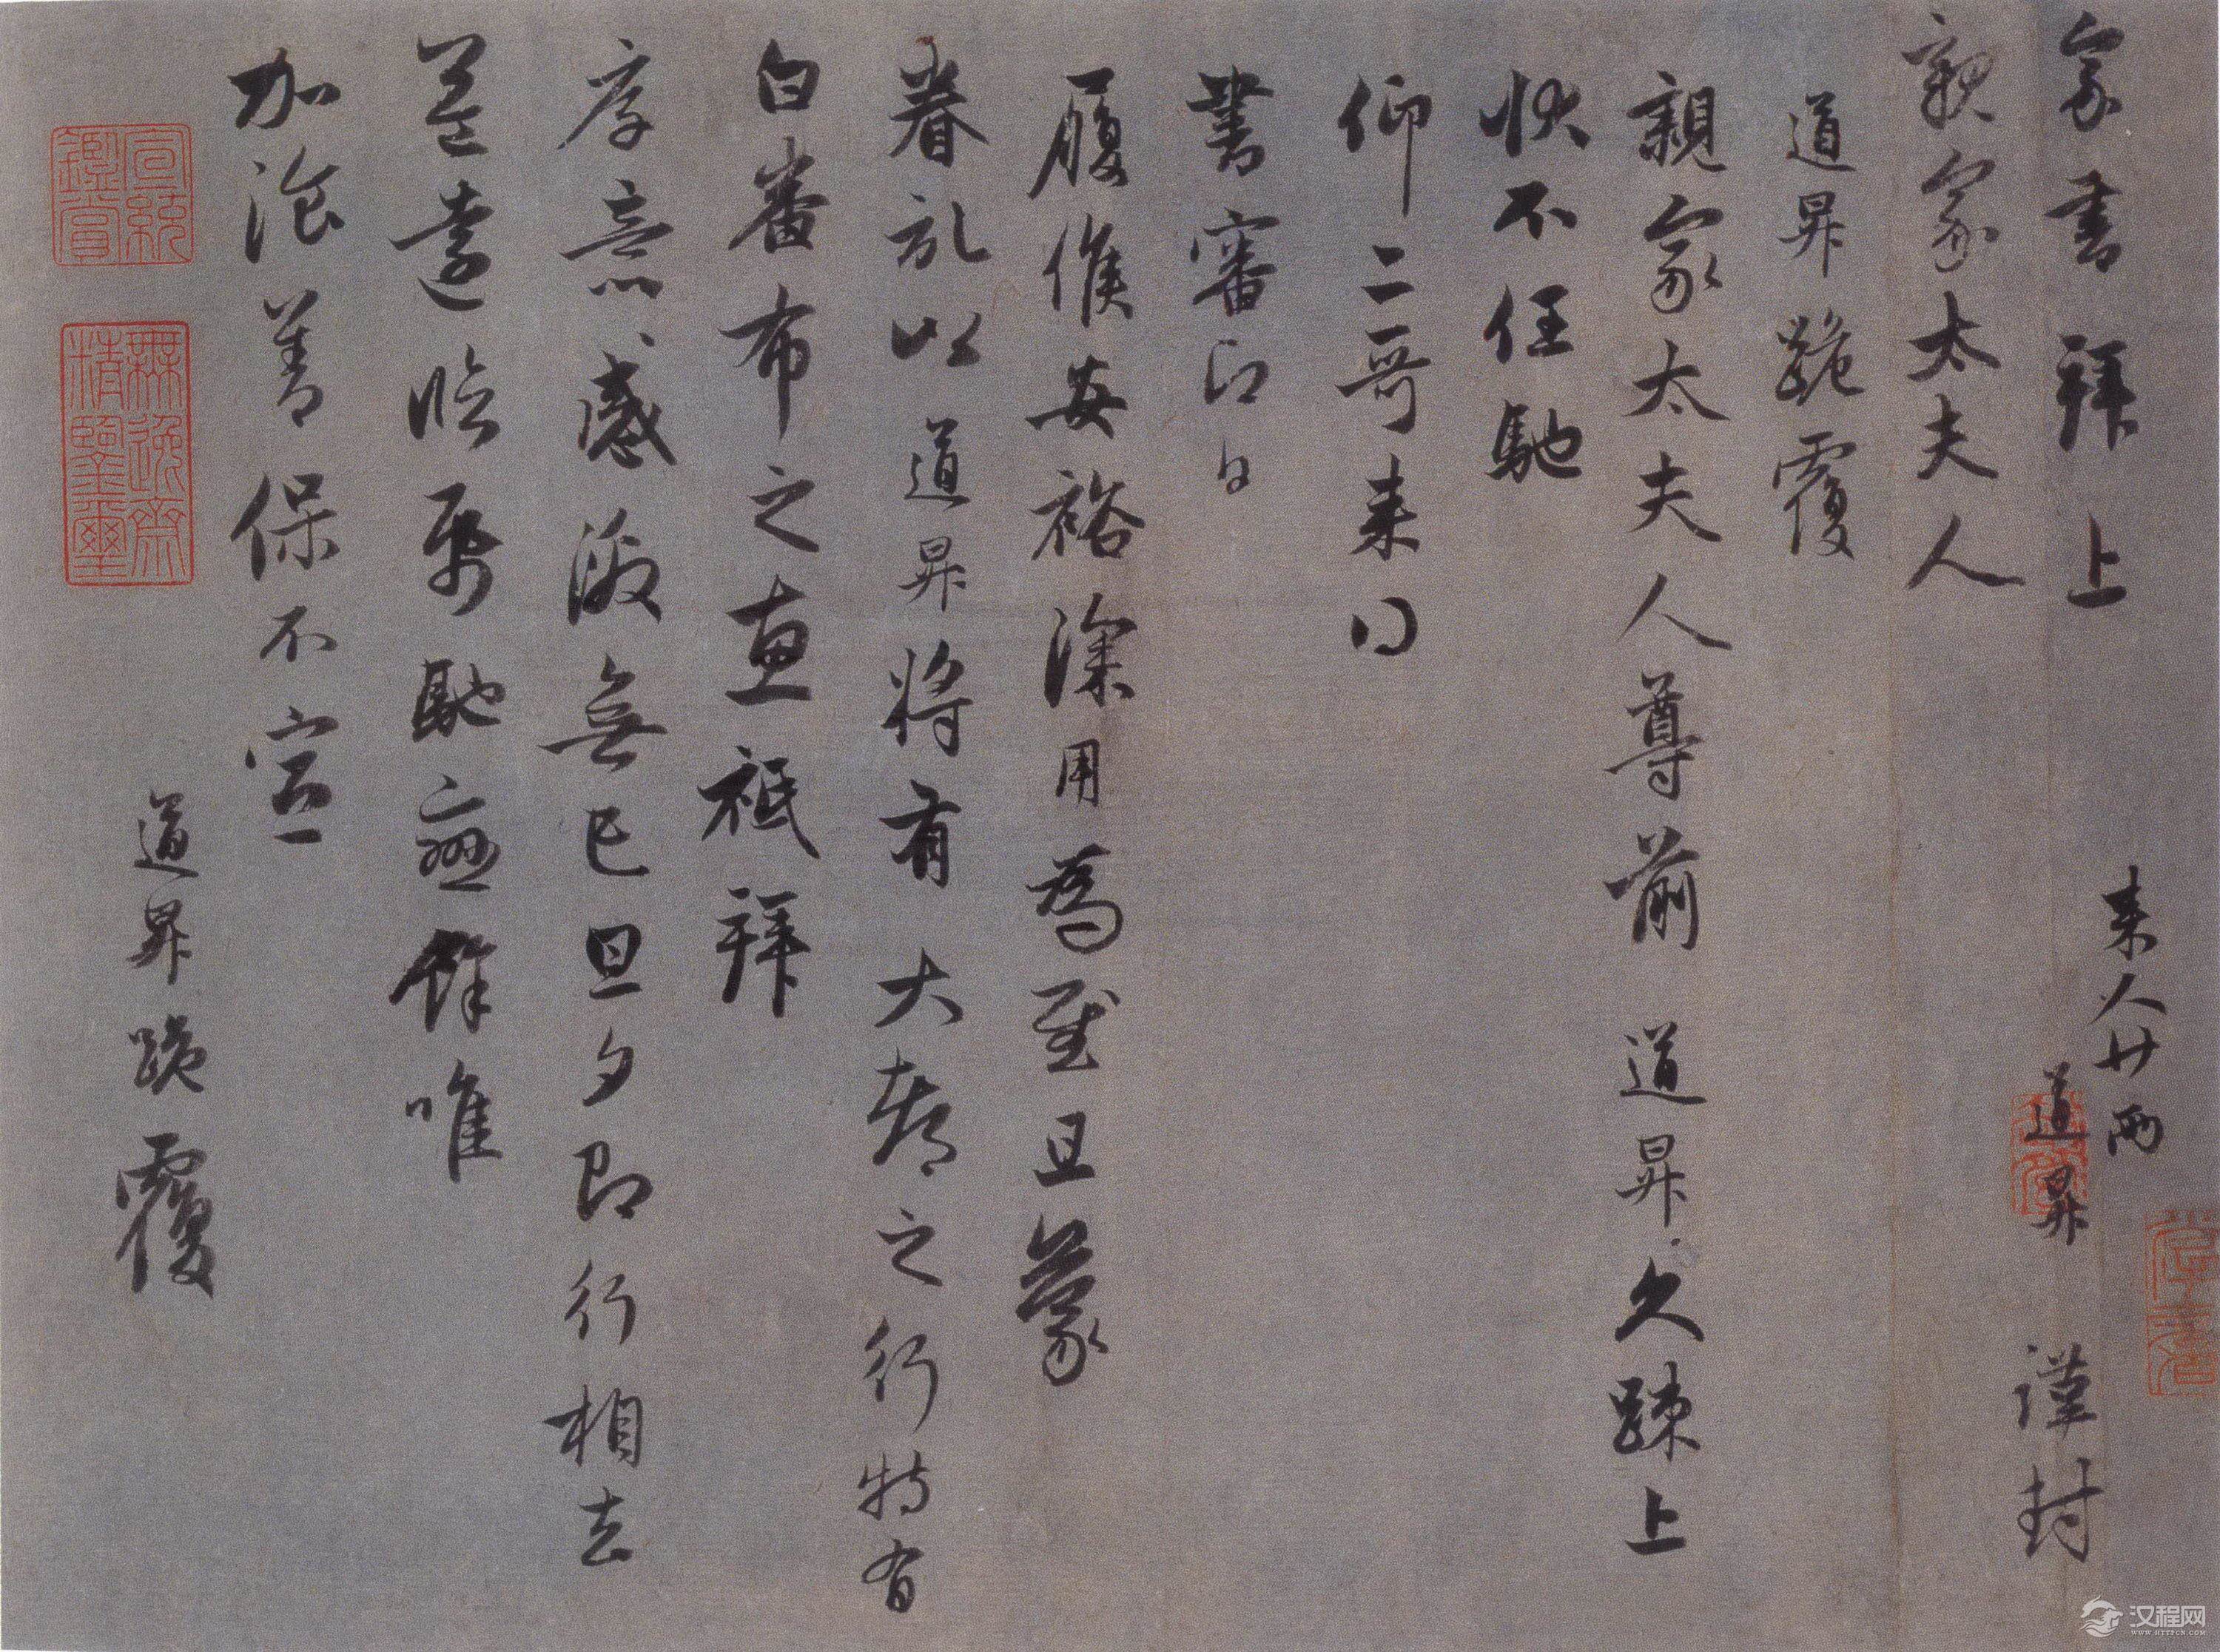 家書拜上
来人廿两
道昇 謹封
親家太夫人
道昇跪覆
親家太夫人尊前 道昇久踈上
状不任馳
仰二哥来得
書審即日
履候安裕深用為慰且蒙
眷記以道昇将有大都之行特有
白番布之惠祗拜
厚意感激無已旦夕即行相去
益遠臨紙馳戀餘唯
加飡善保不宣
道昇跪覆
宣統鑑賞
無逸齋精鑒璽
汉程网
WWW.HTTPCN.COM